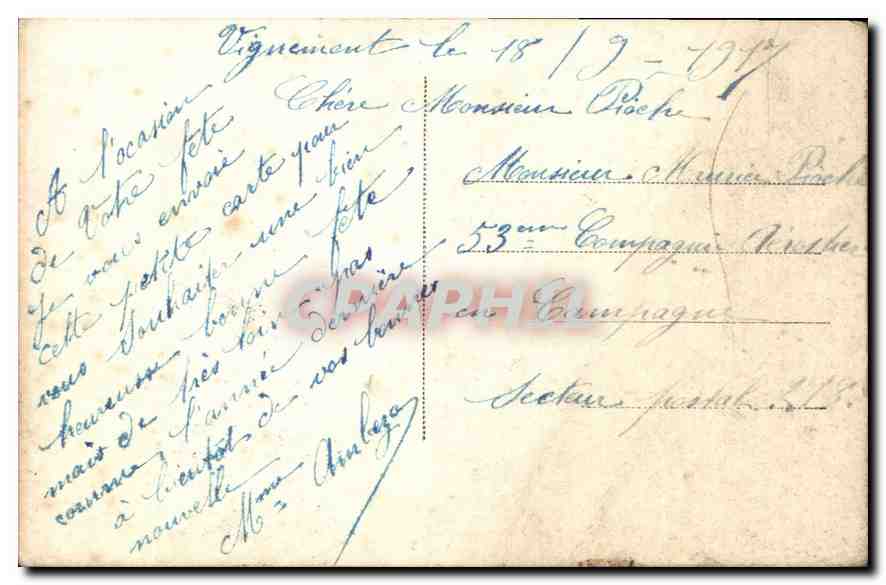 Vignemont le 18/9-1917
Chère Monsieur Pioche
A l'ocasion
de Votre fête
Je vous envoie
cette petite carte pour
vous souhaiter une bien
heureuse bonne fête
mais de très loin pas
comme l'année dernière
à bientôt de vos bonnes
nouvelle
Mme
Monsieur Pioche
53eme Compagnie
en Campagne
Secteur postal
CPAPHIL